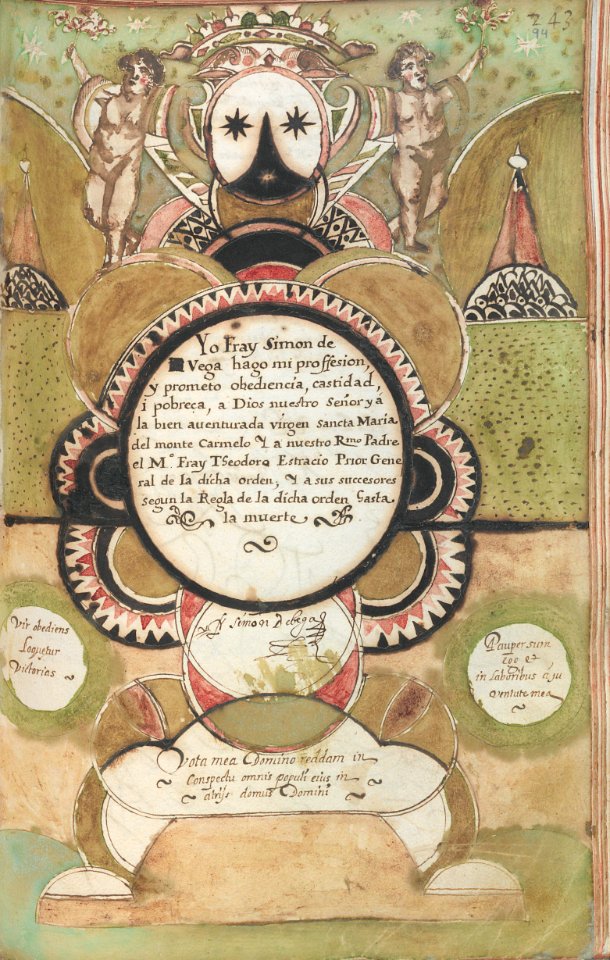 243
94
Yo Fray Simon de
Vega hago mi proffesion,
y prometo obediencia, castidad,
i pobreça, a Dios nuestro Señor y â
la bien auenturada virgen Sancta Maria
del monte Carmelo Y a nuestro Rmo Padre
el Mo Fray Theodoro Estracio Prior Gene
ral de la dicha orden, y a sus succesores
segun la Regla de la dicha orden hasta
la muerte
fr simon de bega
Vir obediens
loquetur
Victorias
Pauper sum
ego et
in laboribus a ju
ventute mea
Vota mea Domino reddam in
Conspectu omnis populi eius in
atrijs domus Domini